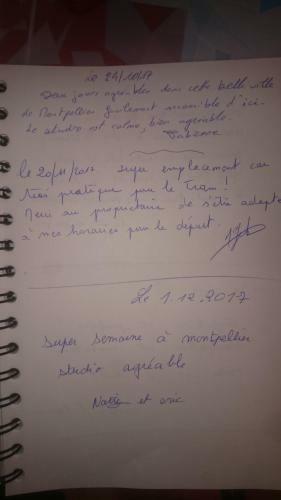 Le 24/10/17
Deux jours agréables dans cette belle ville
de Montpellier facilement accessible d'ici.
Le studio est calme, bien agréable.
Le 20/11/2017 super emplacement car
très pratique pour le Tram !
Merci au propriétaire de s'être adapté
à nos horaires pour le départ.
Le 1.12.2017
super semaine à montpellier
studio agréable
et eric